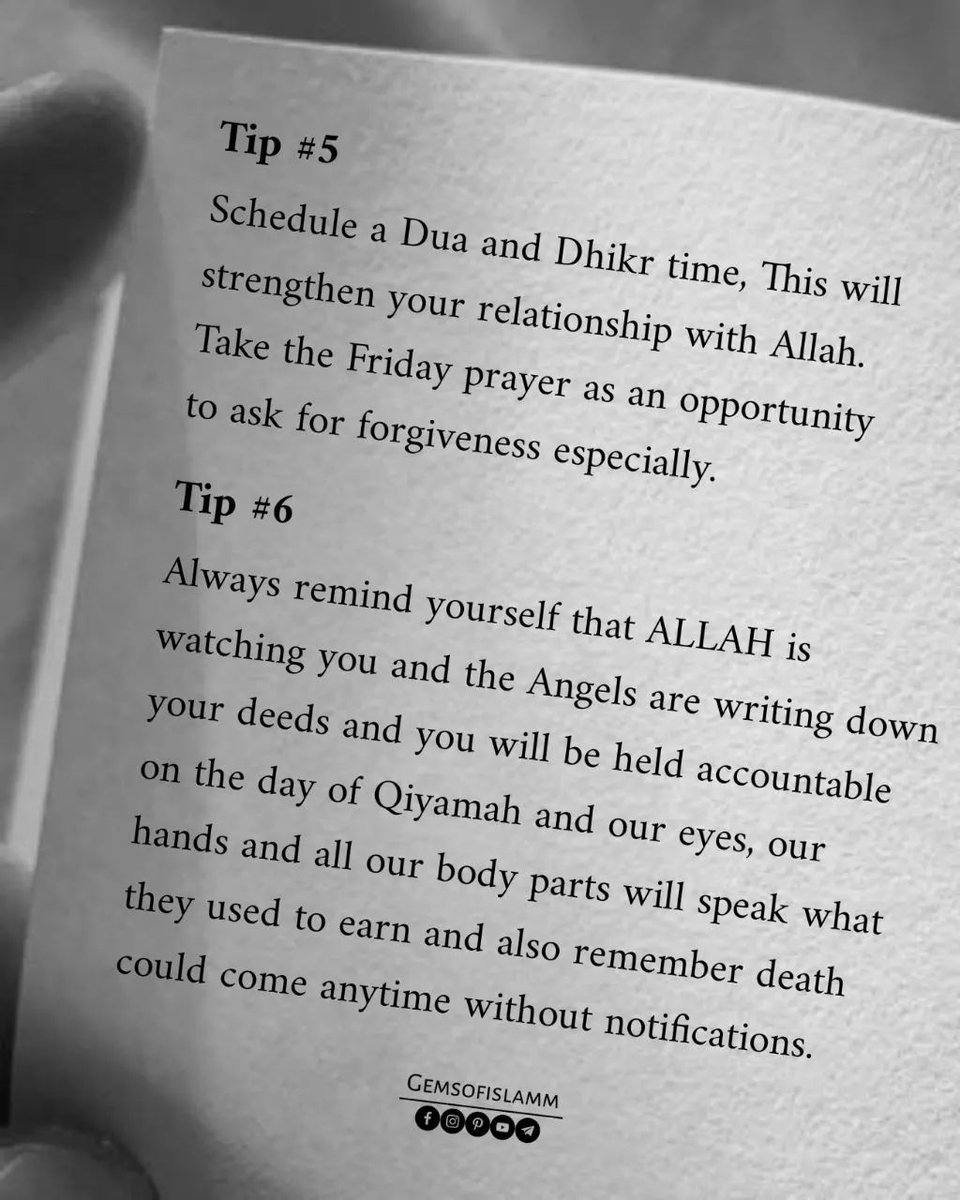 Tip #5
Schedule a Dua and Dhikr time, This will
strengthen your relationship with Allah.
Take the Friday prayer as an opportunity
to ask for forgiveness especially.
Tip #6
Always remind yourself that ALLAH is
watching you and the Angels are writing down
your deeds and you will be held accountable
on the day of Qiyamah and our eyes, our
hands and all our body parts will speak what
they used to earn and also remember death
could come anytime without notifications.
GEMSOFISLAMM